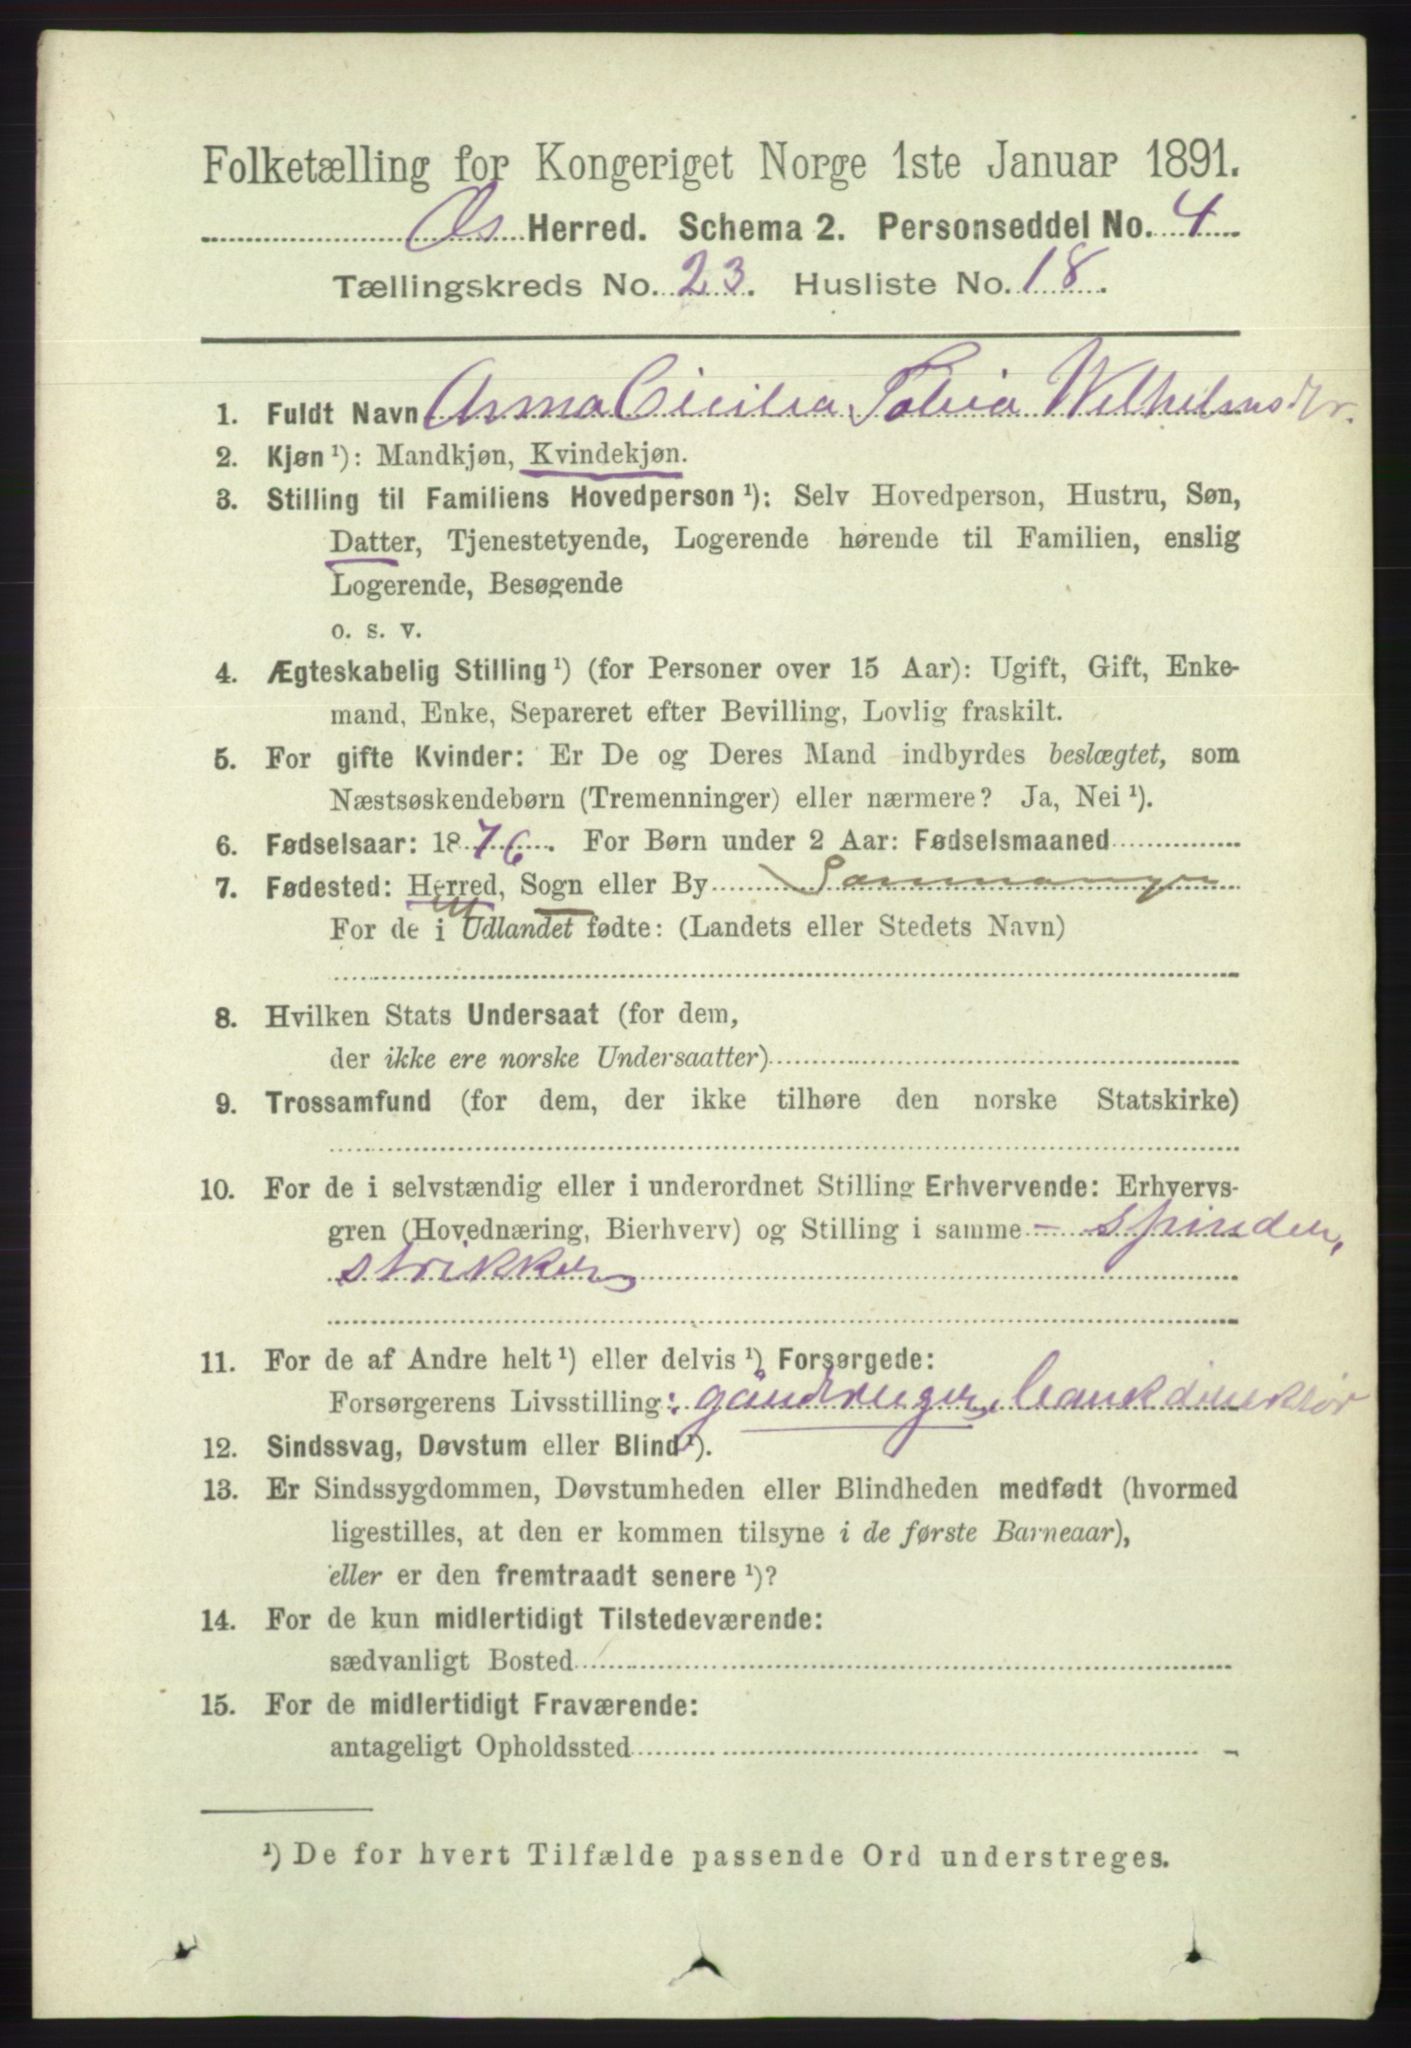 Folketælling for Kongeriget Norge 1ste Januar 1891.
Os Herred. Schema 2. Personseddel No. 4
Tællingskreds No. 23. Husliste No. 18.
1. Fuldt Navn Anna Cicilia Tobia Wilhelmsdtr.
2. Kjøn ¹): Mandkjøn, Kvindekjøn.
3. Stilling til Familiens Hovedperson ¹): Selv Hovedperson, Hustru, Søn,
Datter, Tjenestetyende, Logerende hørende til Familien, enslig
Logerende, Besøgende
o. s. v.
4. Ægteskabelig Stilling ¹) (for Personer over 15 Aar): Ugift, Gift, Enke-
mand, Enke, Separeret efter Bevilling, Lovlig fraskilt.
5. For gifte Kvinder: Er De og Deres Mand indbyrdes beslægtet, som
Næstsøskendebørn (Tremenninger) eller nærmere? Ja, Nei ¹).
6. Fødselsaar: 1876. For Børn under 2 Aar: Fødselsmaaned
7. Fødested: Herred, Sogn eller By Sammanger
For de i Udlandet fødte: (Landets eller Stedets Navn)
8. Hvilken Stats Undersaat (for dem,
der ikke ere norske Undersaatter)
9. Trossamfund (for dem, der ikke tilhøre den norske Statskirke)
10. For de i selvstændig eller i underordnet Stilling Erhvervende: Erhvervs-
gren (Hovednæring, Bierhverv) og Stilling i samme - spinder,
strikker
11. For de af Andre helt ¹) eller delvis ¹) Forsørgede:
Forsørgerens Livsstilling: gaardbruger, bankdirektør
12. Sindssvag, Døvstum eller Blind ¹).
13. Er Sindssygdommen, Døvstumheden eller Blindheden medfødt (hvormed
ligestilles, at den er kommen tilsyne i de første Barneaar),
eller er den fremtraadt senere ¹)?
14. For de kun midlertidigt Tilstedeværende:
sædvanligt Bosted
15. For de midlertidigt Fraværende:
antageligt Opholdssted
¹) De for hvert Tilfælde passende Ord understreges.